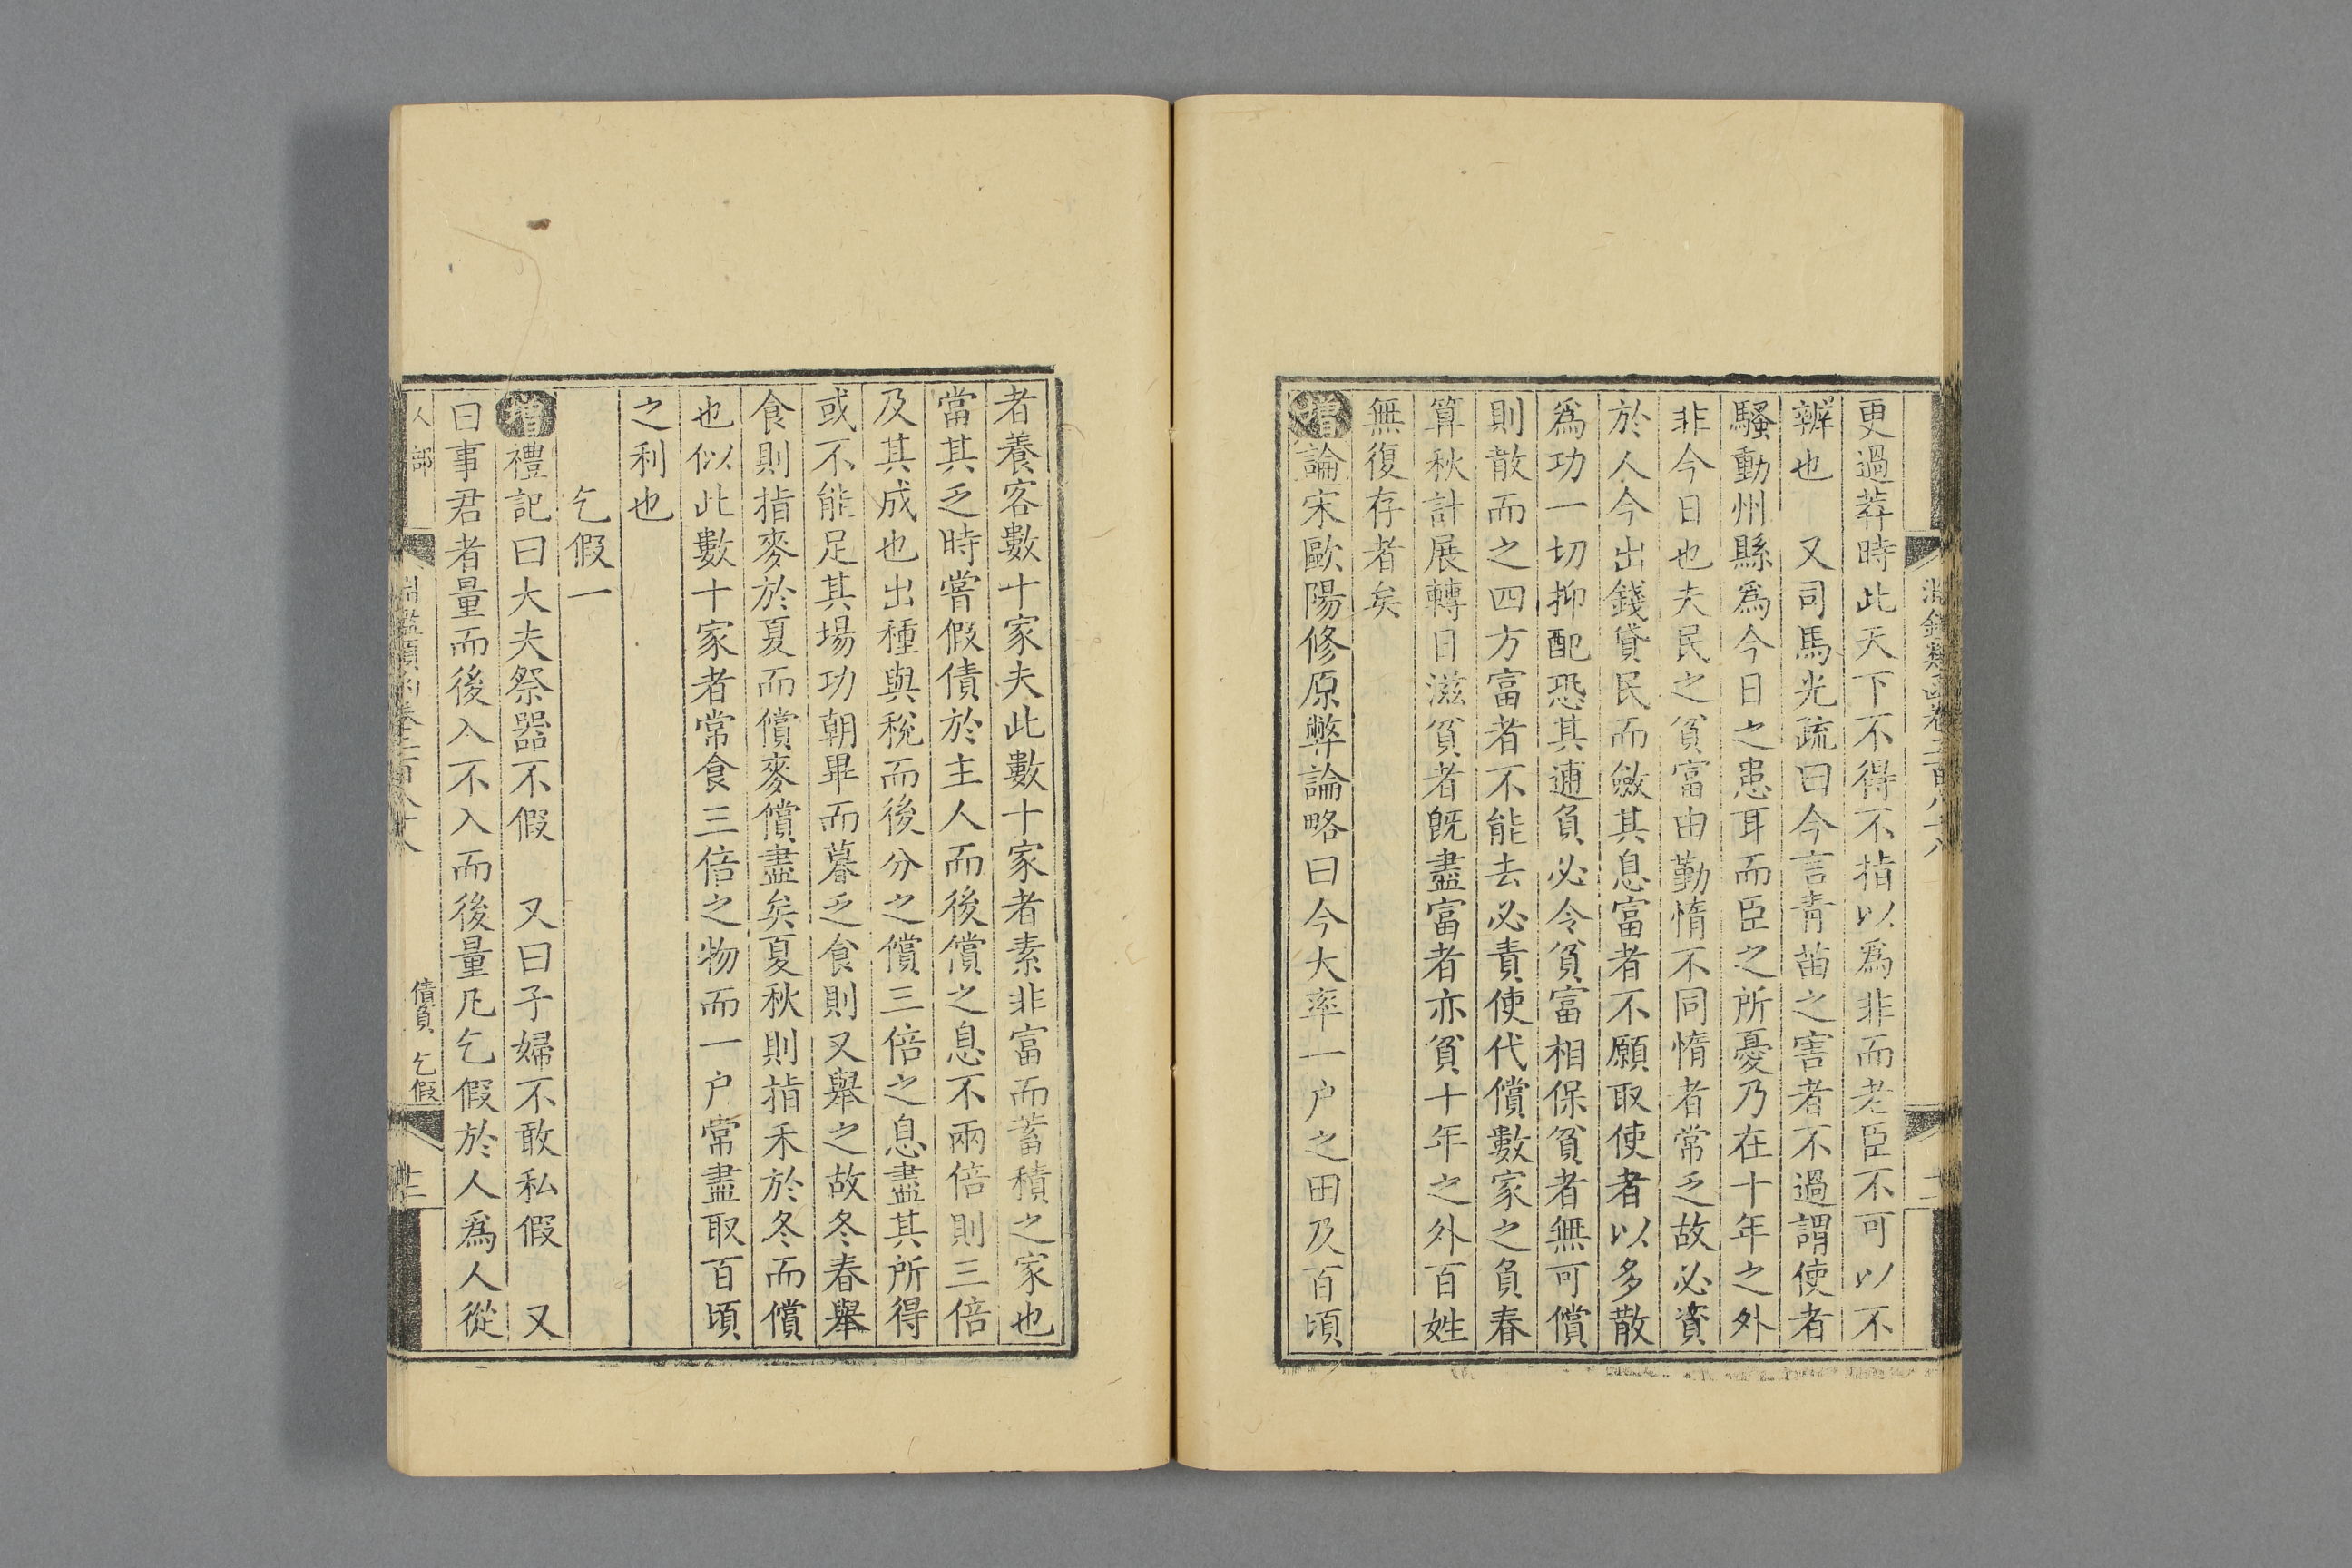 更過莽時此天下不得不指以爲非而老臣不可以不
辨也　又司馬光疏曰今言青苗之害者不過謂使者
騷動州縣爲今日之患耳而臣之所憂乃在十年之外
非今日也夫民之貧富由勤惰不同惰者常乏故必資
於人今出錢貸民而斂其息富者不願取使者以多散
爲功一切抑配恐其逋負必令貧富相保貧者無可償
則散而之四方富者不能去必責使代償數家之負春
算秋計展轉日滋貧者旣盡富者亦貧十年之外百姓
無復存者矣
增論宋歐陽修原弊論略曰今大率一户之田及百頃
者養客數十家夫此數十家者素非富而蓄積之家也
當其乏時嘗假債於主人而後償之息不兩倍則三倍
及其成也出種與稅而後分之償三倍之息盡其所得
或不能足其場功朝畢而暮乏食則又舉之故冬春舉
食則指麥於夏而償麥償盡矣夏秋則指禾於冬而償
也似此數十家者常食三倍之物而一户常盡取百頃
之利也
乞假一
增禮記曰大夫祭器不假　又曰子婦不敢私假　又
曰事君者量而後入不入而後量凡乞假於人爲人從
人部　淵鑑類函卷二百八十八　債負　乞假